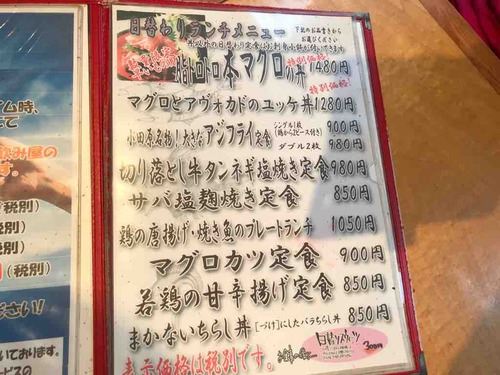 日替わりランチメニュー
下記のお品書きから
お選びください
特別価格!
トロ本マグロの丼 1480円
特別価格!
マグロとアヴォカドのユッケ丼 1280円
小田原名物!大きなアジフライ定食
シングル1枚
(鶏から2ピース付き)
900円
ダブル2枚 980円
切り落とし牛タンネギ塩焼き定食 980円
サバ塩麹焼き定食 850円
鶏の唐揚げ・焼き魚のプレートランチ 1050円
マグロカツ定食 900円
若鶏の甘辛揚げ定食 850円
まかないちらし丼 [づけ]にしたバラちらし丼 850円
300円
表示価格は税別です。
イム時、
こて
飲み屋の
(税別)
(税別)
(税別)
(税別)
ださい!
いております。
ービスの